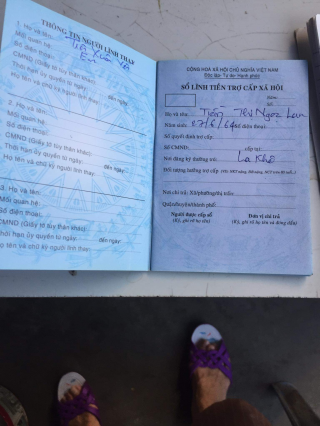 THÔNG TIN NGƯỜI LĨNH THAY
1. Họ và tên:
Mối quan hệ:
Số điện thoại:
CMND (Giấy tờ tùy thân khác)
Thời hạn ủy quyền từ ngày: đến ngày:
Họ tên và chữ ký người lĩnh thay:
2. Họ và tên:
Mối quan hệ:
Số điện thoại:
CMND (Giấy tờ tùy thân khác)
Thời hạn ủy quyền từ ngày: đến ngày:
Họ tên và chữ ký người lĩnh thay:
3. Họ và tên:
Mối quan hệ:
Số điện thoại:
CMND (Giấy tờ tùy thân khác)
Thời hạn ủy quyền từ ngày: đến ngày:
Họ tên và chữ ký người lĩnh thay:
CỘNG HOÀ XÃ HỘI CHỦ NGHĨA VIỆT NAM
Độc lập Tự do Hạnh phúc
SỔ LĨNH TIỀN TRỢ CẤP XÃ HỘI
Họ và tên: Thị Ngọc Lan
Năm sinh: Số điện thoại:
Số quyết định trợ cấp:
Số CMND: cấp tại:
Nơi đang ký thường trú: La Khê
Đối tượng hưởng trợ cấp
Nơi chi trả: Xã/phường/thị trấn:
Quận/huyện/thành phố:
Người được cấp sổ Đơn vị chi trả
(Ký, ghi rõ họ tên) (Ký, ghi rõ họ tên và đóng dấu)